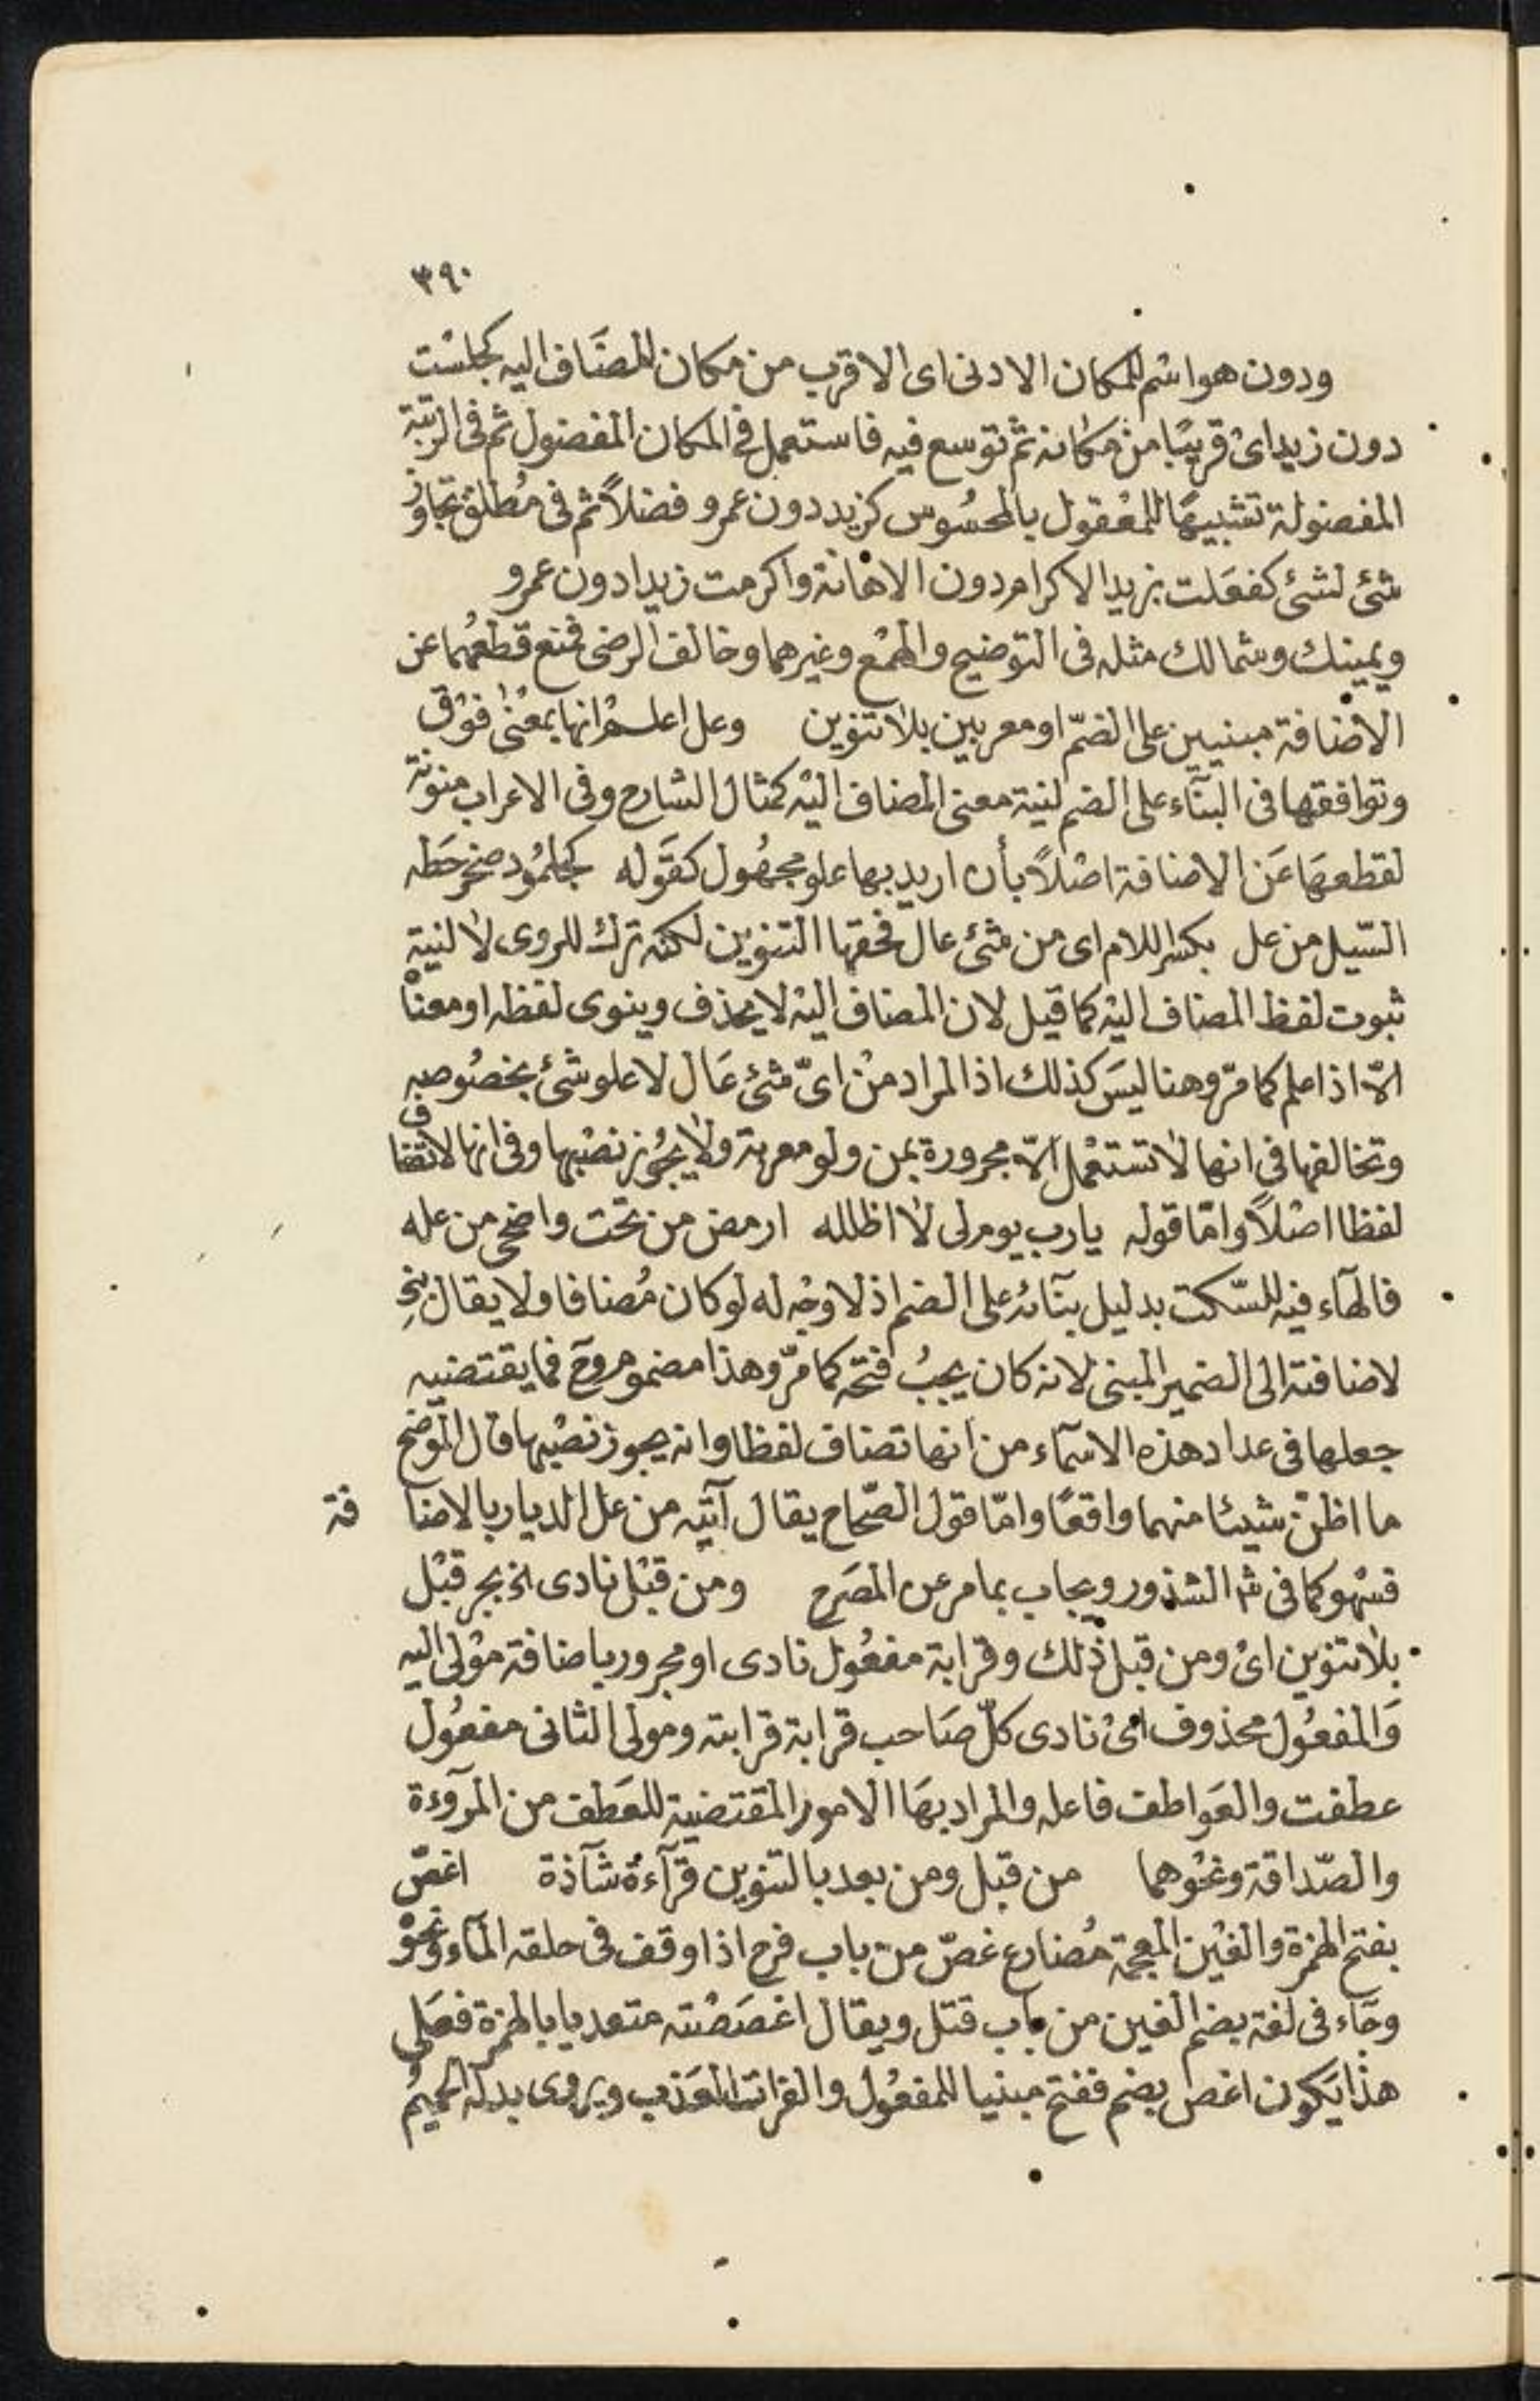 ٣٩٠
ودون هو اسْم للمكان الادنى اى الاقرب من مكان المضَاف اليه كجلسْت
دون زيد اىْ قريبًا من مكانه ثم توسع فيه فاستعمل فى المكان المفضول ثم فى الرتبة
المفضولة تشبيهًا للمعْقول بالمحسُوس كزيد دون عمرو فضلاً ثم فى مُطلق تجاوز
شئ لشئ كفعَلت بزيد الاكرام دون الاهانة واكرمت زيدا دون عمرو
ويمينك وشمالك مثله فى التوضيح والهمْع وغيرهما وخالف الرضى فمنع قطعهُما عن
الاضافة مبنيين على الضمّ او معربين بلا تنوين وعل اعلم انها بمعْنى فوْق
وتوافقها فى البنآء على الضم لنية معنى المضاف اليْه كمثال الشارح وفى الاعراب منونة
لقطعهَا عَن الاضافة اصْلاً بأن اريد بها علو مجهُول كقَوله كجلمُود صخر حَطه
السّيل من عل بكسْر اللام اى من شئ عال فحقها التنوين لكنه ترك للروى لا لنية
ثبوت لفظ المضاف اليْه كما قيل لان المضاف اليْه لا يحذف وينوى لفظه او معناْ
الاّ اذا علم كما مرّ وهنا ليسَ كذلك اذ المراد منْ اىّ شئ عَال لا علو شئ بخصُوصه
وتخالفها فى انها لا تستعْمل الاّ مجرورة بمن ولو معربة ولا يجُوز نصْبها وفى انها لا تضاف
لفظا اصْلاً وامّا قوله يارب يوم لى لا اظلله ارمض من تحْت واضحى من عله
فالهآء فيْه للسّكت بدليل بنآئه على الضم اذ لا وجْه له لو كان مُضافا ولا يقال بنِى
لاضافته الى الضمير المبنى لانه كان يجبُ فتحْه كما مرّ وهذا مضموم وحّ فما يقتضيه
جعلها فى عداد هذه الاسمآء من انها تضاف لفظا وانه يجوز نصْبها قال الموّضح
ما اظنّ شيئا منهما واقعًا وامّا قول الصّحاح يقال آتيْه من عل الديار بالاضا فة
فسْهو كما فى شْ الشذور ويجاب بما مر عن المصَرح ومن قبْل نادى الخ بجر قبْل
بلا تنوين اىْ ومن قبل ذلك وقرابة مفعُول نادى او مجرور باضافة موْلى اليه
وَالمفعُول محذوف اىْ نادى كلّ صَاحب قرابة قرابته ومولى الثانى مفعُول
عطفت والعَواطف فاعله والمراد بهَا الامور المقتضية للعَطف من المروءة
والصّداقة ونحُوهما من قبل ومن بعد بالتنوين قرآءة شآذة اغصّ
بفتح الهمْزة والغيْن المعجمة مُضارع غصّ من باب فرح اذا وقف فى حلقه المآء ونحْوْ
وجآء فى لغة بضم الغين من باب قتل ويقال اغصَصْته متعديا بالهمزة فعَلى
هذا يَكون اغص بضم ففتح مبنيا للمفعُول والفرات العَذب ويروى بدله الحميمُ